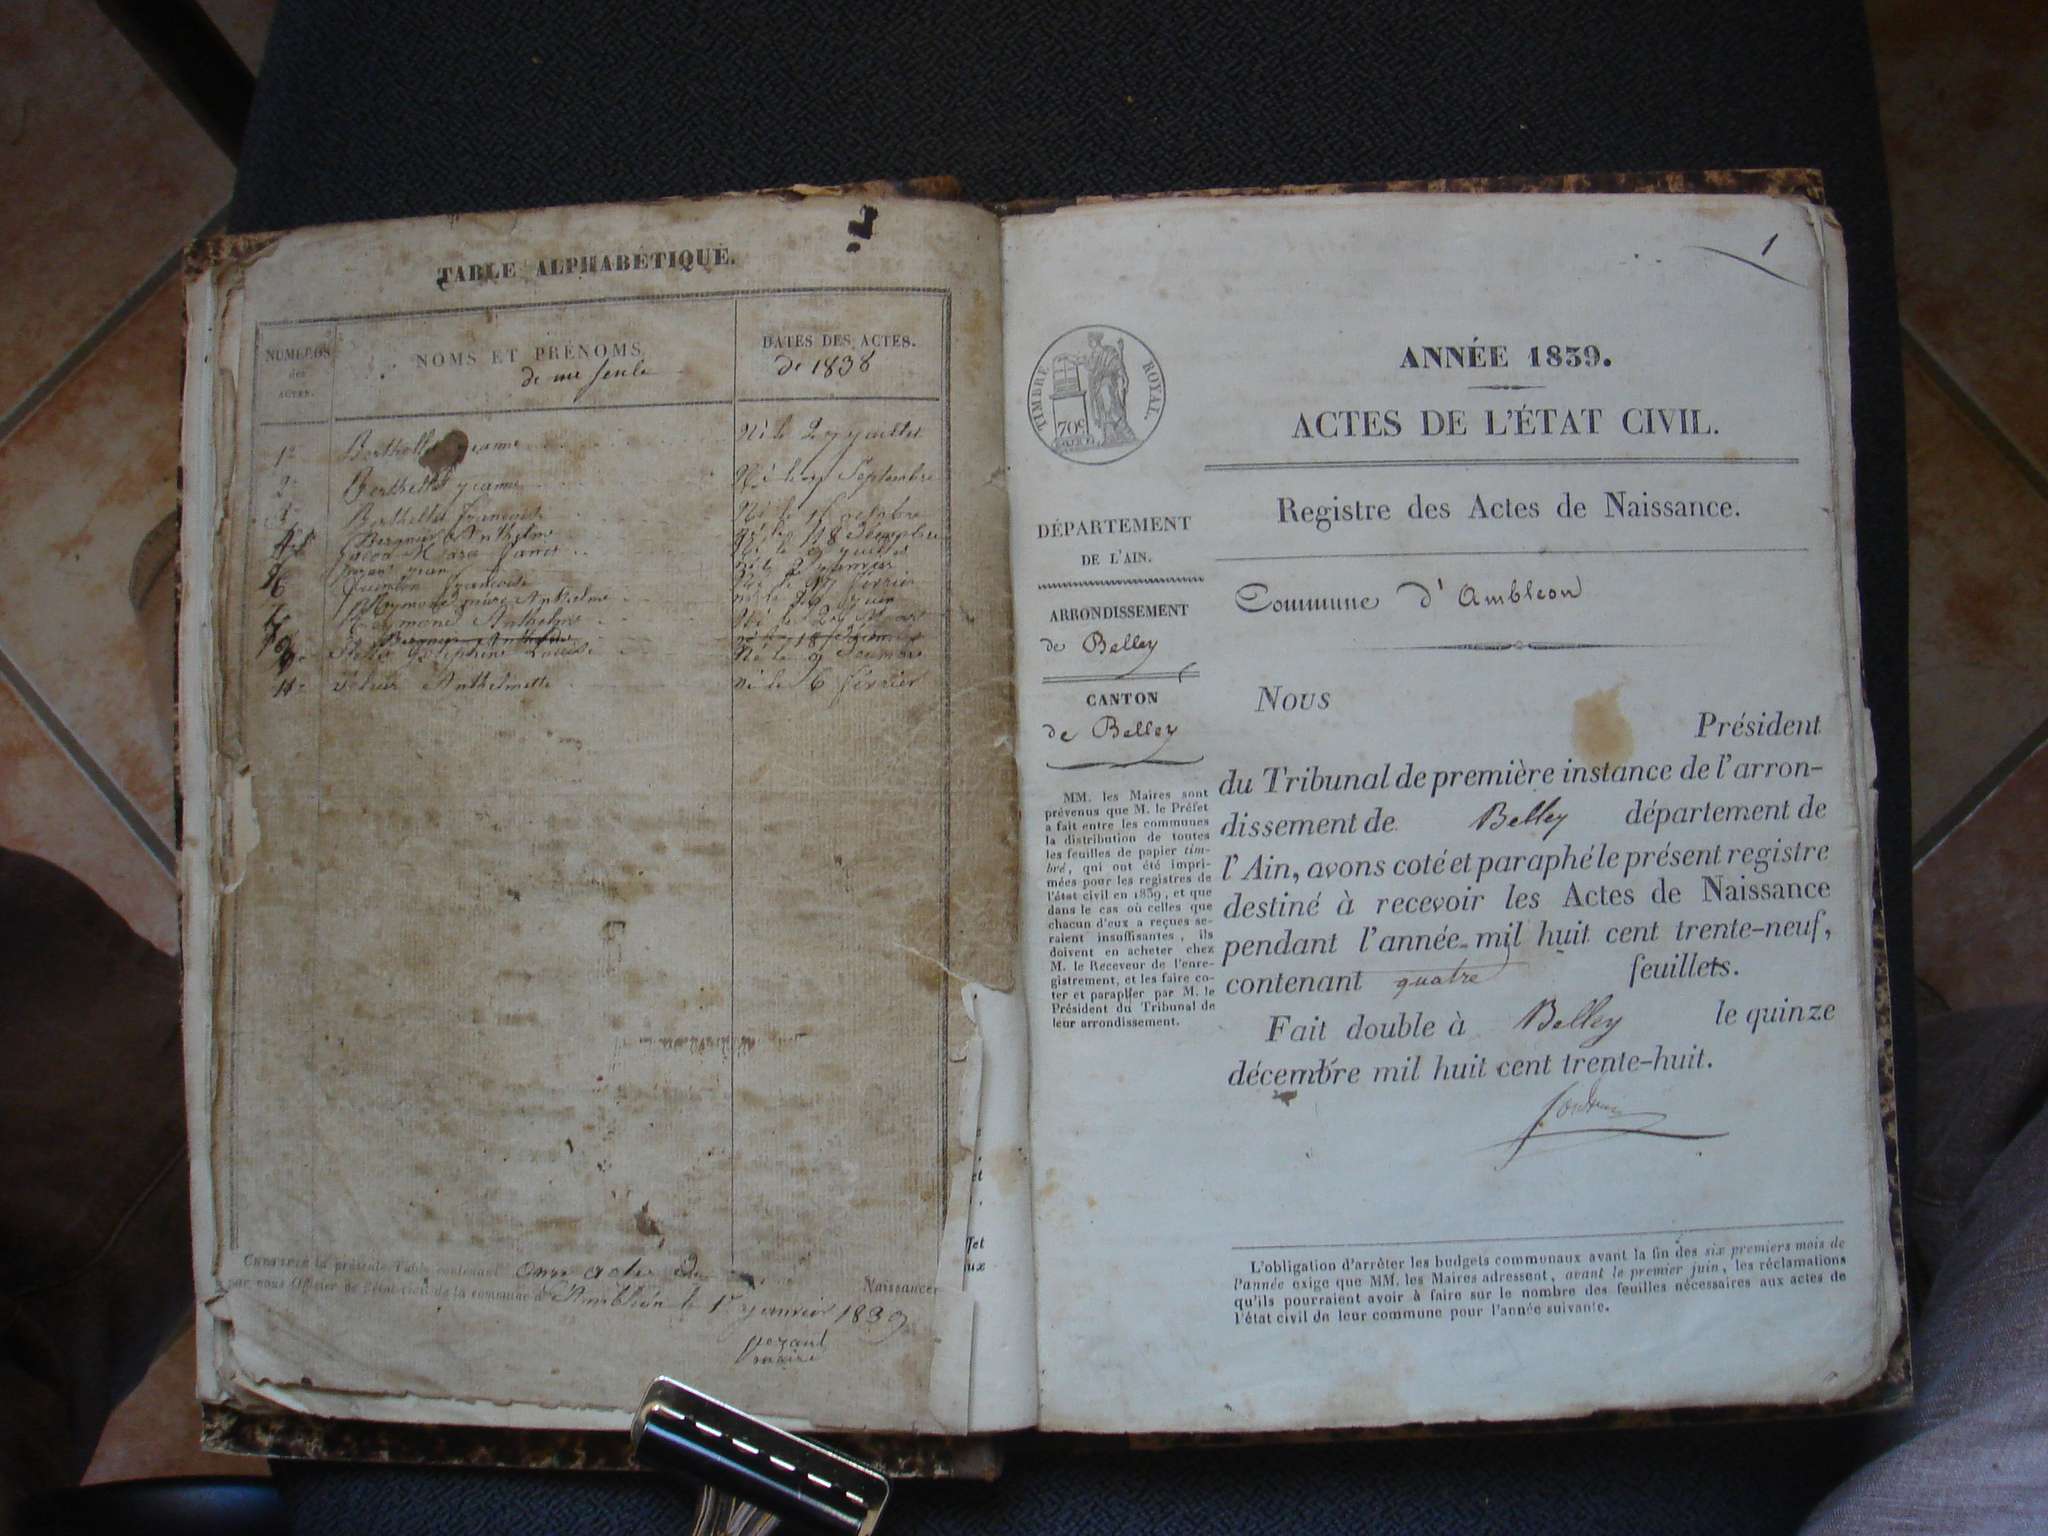 TABLE ALPHABÉTIQUE.
NUMÉROS
des
ACTES.
NOMS ET PRÉNOMS.
DATES DES ACTES.
de 1838
1º Berthellet Jeanne Né le 27 juillet
2º Berthellet Jeanne Né le Septembre
3º Berthellet François Né le 15 octobre
Bergnier Anthelme Né le 18
Né le 9 juillet
né le janvier
Françoise Né le février
Reymond Anthelme né le juin
Reymond Anthelme Né le 24
Bergnier Anthelme
Joséphine Louise Né le 9
11º Anthelmette né le 6 février
CERTIFIÉ la présente Table contenant onze actes de Naissances
par nous Officier de l'état civil de la commune d'Ambléon le 1er janvier 1839
maire
1
TIMBRE ROYAL.
70c
ANNÉE 1839.
ACTES DE L'ÉTAT CIVIL.
Registre des Actes de Naissance.
Commune d'Ambleon
DÉPARTEMENT
DE L'AIN.
ARRONDISSEMENT
de Belley
CANTON
de Belley
MM. les Maires sont
prévenus que M. le Préfet
a fait entre les communes
la distribution de toutes
les feuilles de papier tim-
bré, qui ont été impri-
mées pour les registres de
l'état civil en 1839, et que
dans le cas où celles que
chacun d'eux a reçues se-
raient insuffisantes, ils
doivent en acheter chez
M. le Receveur de l'enre-
gistrement, et les faire co-
ter et parapher par M. le
Président du Tribunal de
leur arrondissement.
Nous
Président
du Tribunal de première instance de l'arron-
dissement de Belley département de
l'Ain, avons coté et paraphé le présent registre
destiné à recevoir les Actes de Naissance
pendant l'année mil huit cent trente-neuf,
contenant quatre feuillets.
Fait double à Belley le quinze
décembre mil huit cent trente-huit.
L'obligation d'arrêter les budgets communaux avant la fin des six premiers mois de
l'année exige que MM. les Maires adressent, avant le premier juin, les réclamations
qu'ils pourraient avoir à faire sur le nombre des feuilles nécessaires aux actes de
l'état civil de leur commune pour l'année suivante.